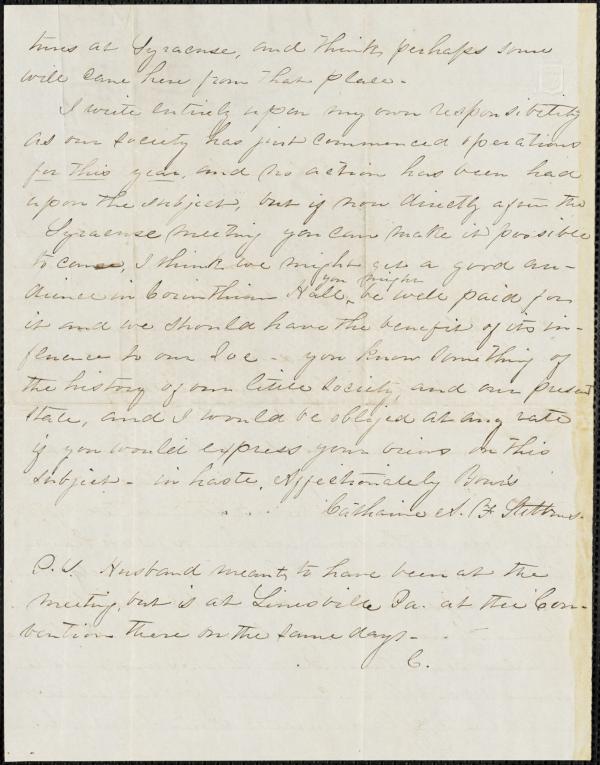 tures at Syracuse, and think perhaps some
will come here from that place -
I write entirely upon my own responsibility
as our society has just commenced operations
for this year, and no action has been had
upon the subject, but if now directly after the
Syracuse meeting you can make it possible
to come, I think we might get a good au-
you might
dience in Corinthian Hall, be well paid for
it and we should have the benefit of its in-
fluence to our Soc - you know something of
the history of our little society, and our present
state, and I would be obliged at any rate
if you would express your views on this
subject - in haste, Affectionately Yours
Catharine A. F. Stebbins.
P.S. Husband meant to have been at the
meeting, but is at Linesville Pa. at the Con-
vention there on the same days -
C.